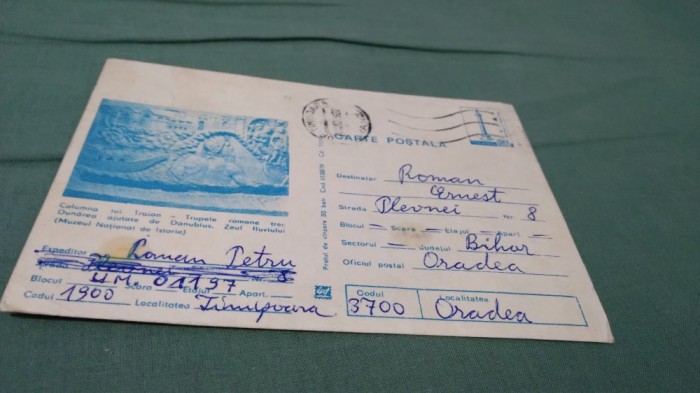 CARTE POSTALA
Columna lui Traian – Trupele romane trec
Dunărea ajutate de Danubius, Zeul fluviului
(Muzeul Național de Istorie)
Expeditor Roman Petru
Nr. 8
Blocul U.M. 01197 Scara Etajul Apart.
Codul 1900 Localitatea Timișoara
Prețul de vînzare
Destinatar Roman
Ernest
Strada Plevnei Nr. 8
Blocul — Scara — Etajul — Apart. —
Sectorul — Județul Bihor
Oficiul poștal Oradea
Codul 3700 Localitatea Oradea